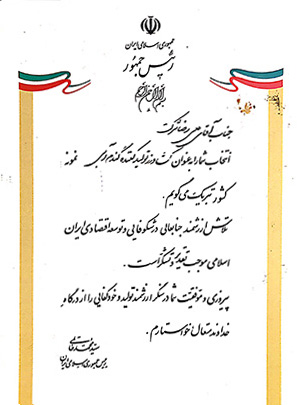 جمهوری اسلامی ایران
رئیس جمهور
بسم الله الرحمن الرحیم
جناب آقای علی رضا شرکت
انتخاب شما به عنوان کشاورز تولید کننده گندم آبی نمونه
کشور تبریک می گویم.
تلاش ارزشمند جنابعالی در شکوفایی و توسعه اقتصادی ایران
اسلامی موجب تقدیر و تشکر است.
پیروزی و موفقیت شما در سنگر ارزشمند تولید و خودکفایی را از درگاه
خداوند متعال خواستارم.
سید محمد خاتمی
رئیس جمهوری اسلامی ایران